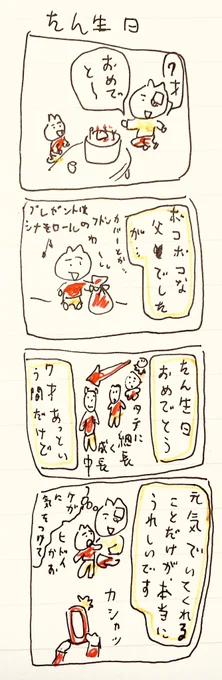 たん生日
7才
おめで
と〜
プレゼントは
シナモロールのフトン
カバーとか…
わーい
ボコボコな
父でした
が…
たん生日
おめでとう
7才 あっとい
う間だけど
タテに
細長く
成長
中
元気でいてくれる
ことだけが、本当に
うれしいです
ケガ
に
ヒドイ
かお
気をつけて
カシャッ